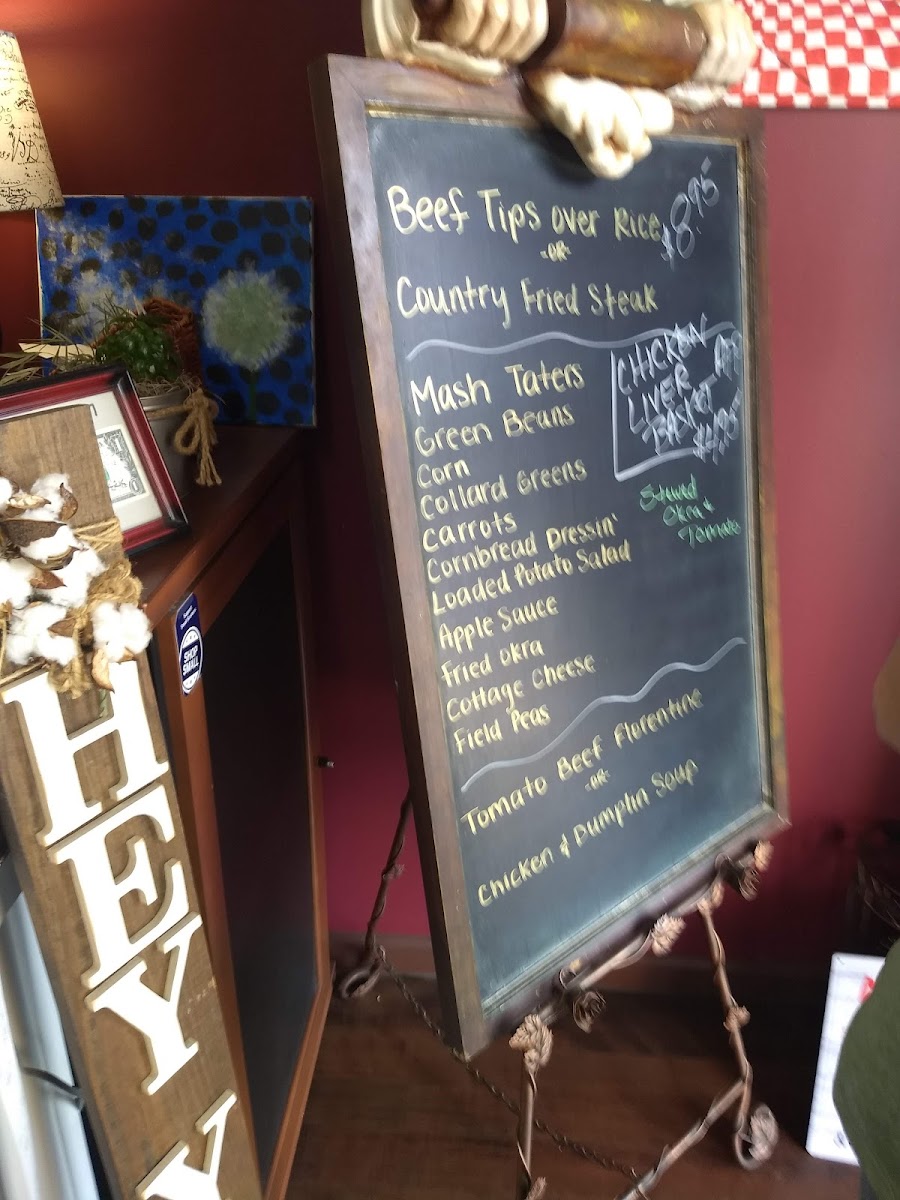 Beef Tips over Rice
$8.95
-OR-
Country Fried Steak
Mash Taters
Green Beans
Corn
Collard Greens
Carrots
Cornbread Dressin'
Loaded Potato Salad
Apple Sauce
Fried Okra
Cottage Cheese
Field Peas
CHICKEN
LIVER
BASKET
Stewed
Okra &
Tomato
Tomato Beef Florentine
-OR-
Chicken & Dumplin Soup
SHOP
SMALL
HEY
Y